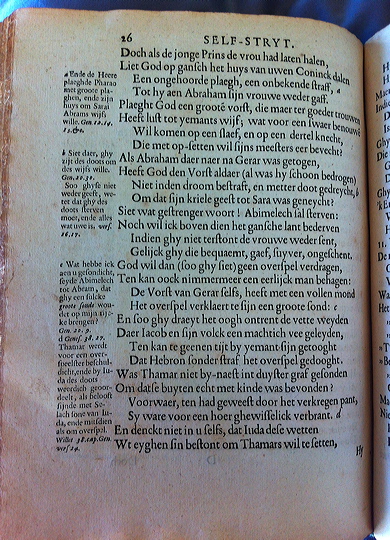 26 SELF-STRYT.
Doch als de jonge Prins de vrou had laten halen,
Liet God op gansch het huys van uwen Coninck dalen
Een ongehoorde plaegh, een onbekende straff, a
Tot hy aen Abraham sijn vrouwe weder gaff.
Plaeght God een groote vorst, die maer ter goeder trouwen
Heeft lust tot yemants wijf; wat voor een swaer benouwen
Wil komen op een slaef, en op een dertel knecht,
Die met op-setten wil sijns meesters eer bevecht?
Als Abraham daer naer na Gerar was getogen,
Heeft God den Vorst aldaer (al was hy schoon bedrogen)
Niet inden droom bestraft, en metter doot gedreycht, b
Om dat sijn kriele geest tot Sara was geneycht?
Siet wat gestrenger woort! Abimelech sal sterven:
Noch wil ick boven dien het gansche lant bederven
Indien ghy niet terstont de vrouwe weder sent,
Gelijck ghy die bequaemt, gaef, suyver, ongeschent.
God wil dan (soo ghy siet) geen overspel verdragen,
Ten kan oock nimmermeer een eerlijck man behagen:
De Vorst van Gerar selfs, heeft met een vollen mond
Het overspel verklaert te sijn een groote sond: c
En soo ghy draeyt het oogh ontrent de vette weyden
Daer Jacob en sijn volck een machtich vee geleyden,
Ten kan te geenen tijt by yemant sijn getooght
Dat Hebron sonder straf het overspel gedooght.
Was Thamar niet by-naest int duyster graf gesonden
Om datse buyten echt met kinde was bevonden?
Voorwaer, ten had geweest door het verkregen pant,
Sy ware voor een hoer ghewisselick verbrant. d
En denckt niet in u selfs, dat Iuda dese wetten
Wt eyghen sin bestont om Thamars wil te setten,
Hy
a Ende de Heere
plaeghde Pharao
met groote pla-
ghen, ende sijn
huys om Sarai
Abrams wijfs
wille. Gen. 12. 14.
15. &c.
b Siet daer, ghy
zijt des doots om
des wijfs wille.
Gen. 20. 30.
Soo ghyse niet
wedergeeft, we-
tet dat ghy des
doots sterven
moet, ende alles
wat uwe is. vers.
16. 17.
c Wat hebbe ick
aen u gesondicht,
seyde Abimelech
tot Abram, dat
ghy een sulcke
groote sonde wou-
det op mijn rijc-
ke brengen?
Gen. 20. 9.
d Genes. 38. 27.
Thamar werdt
voor een over-
speelster beschul-
dicht, ende by Iu-
da des doots
weerdich geoor-
deelt, als beloost
sijnde met Se-
lach sone van Iu-
da, ende mitsdien
als om overspel.
Willet 38. cap. Gen.
vers 24.